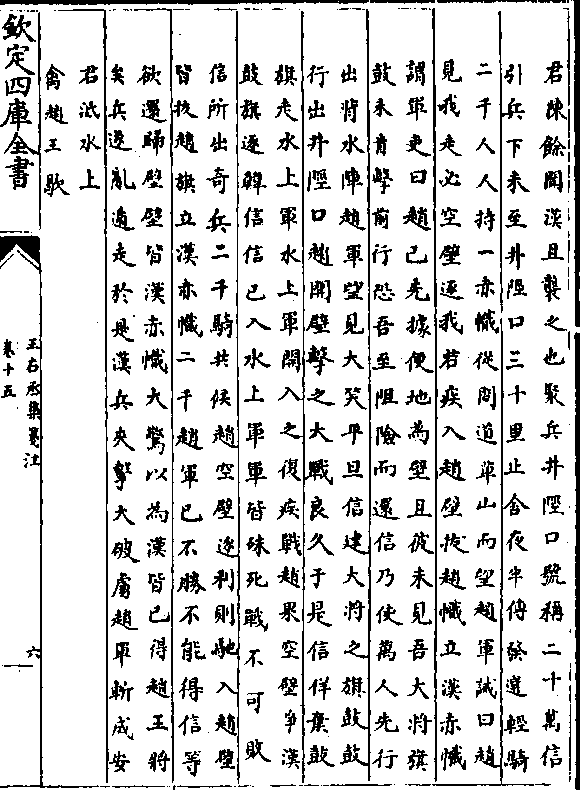 君陳餘聞漢且襲之也聚兵井陘口號稱二十萬信
引兵下未至井陘口三十里止舍夜半傳發選輕騎
二千人人持一赤幟從間道萆山而望趙軍誡曰趙
見我走必空壁逐我若疾入趙壁拔趙幟立漢赤幟
謂軍吏曰趙已先據便地為壁且彼未見吾大將旗
鼓未肯擊前行恐吾至阻險而還信乃使萬人先行
出將水陣趙軍望見大笑平旦信建大將之旗鼓鼓
行出井陘口趙開壁擊之大戰良久于是信佯棄鼓
旗走水上軍水上軍開入之復疾戰趙果空壁爭漢
鼓旗逐韓信信已入水上軍軍皆殊死戰不可敗
信所出奇兵二千騎共候趙空壁逐利則馳入趙壁
皆拔趙旗立漢赤幟二千趙軍已不勝不能得信等
欲還歸壁壁皆漢赤幟大驚以為漢皆已得趙王將
矣兵遂亂遁走於是漢兵夾擊大破虜趙軍斬成安
君泜水上
禽趙王歇
欽定四庫全書
王右丞集箋注
卷十五
六